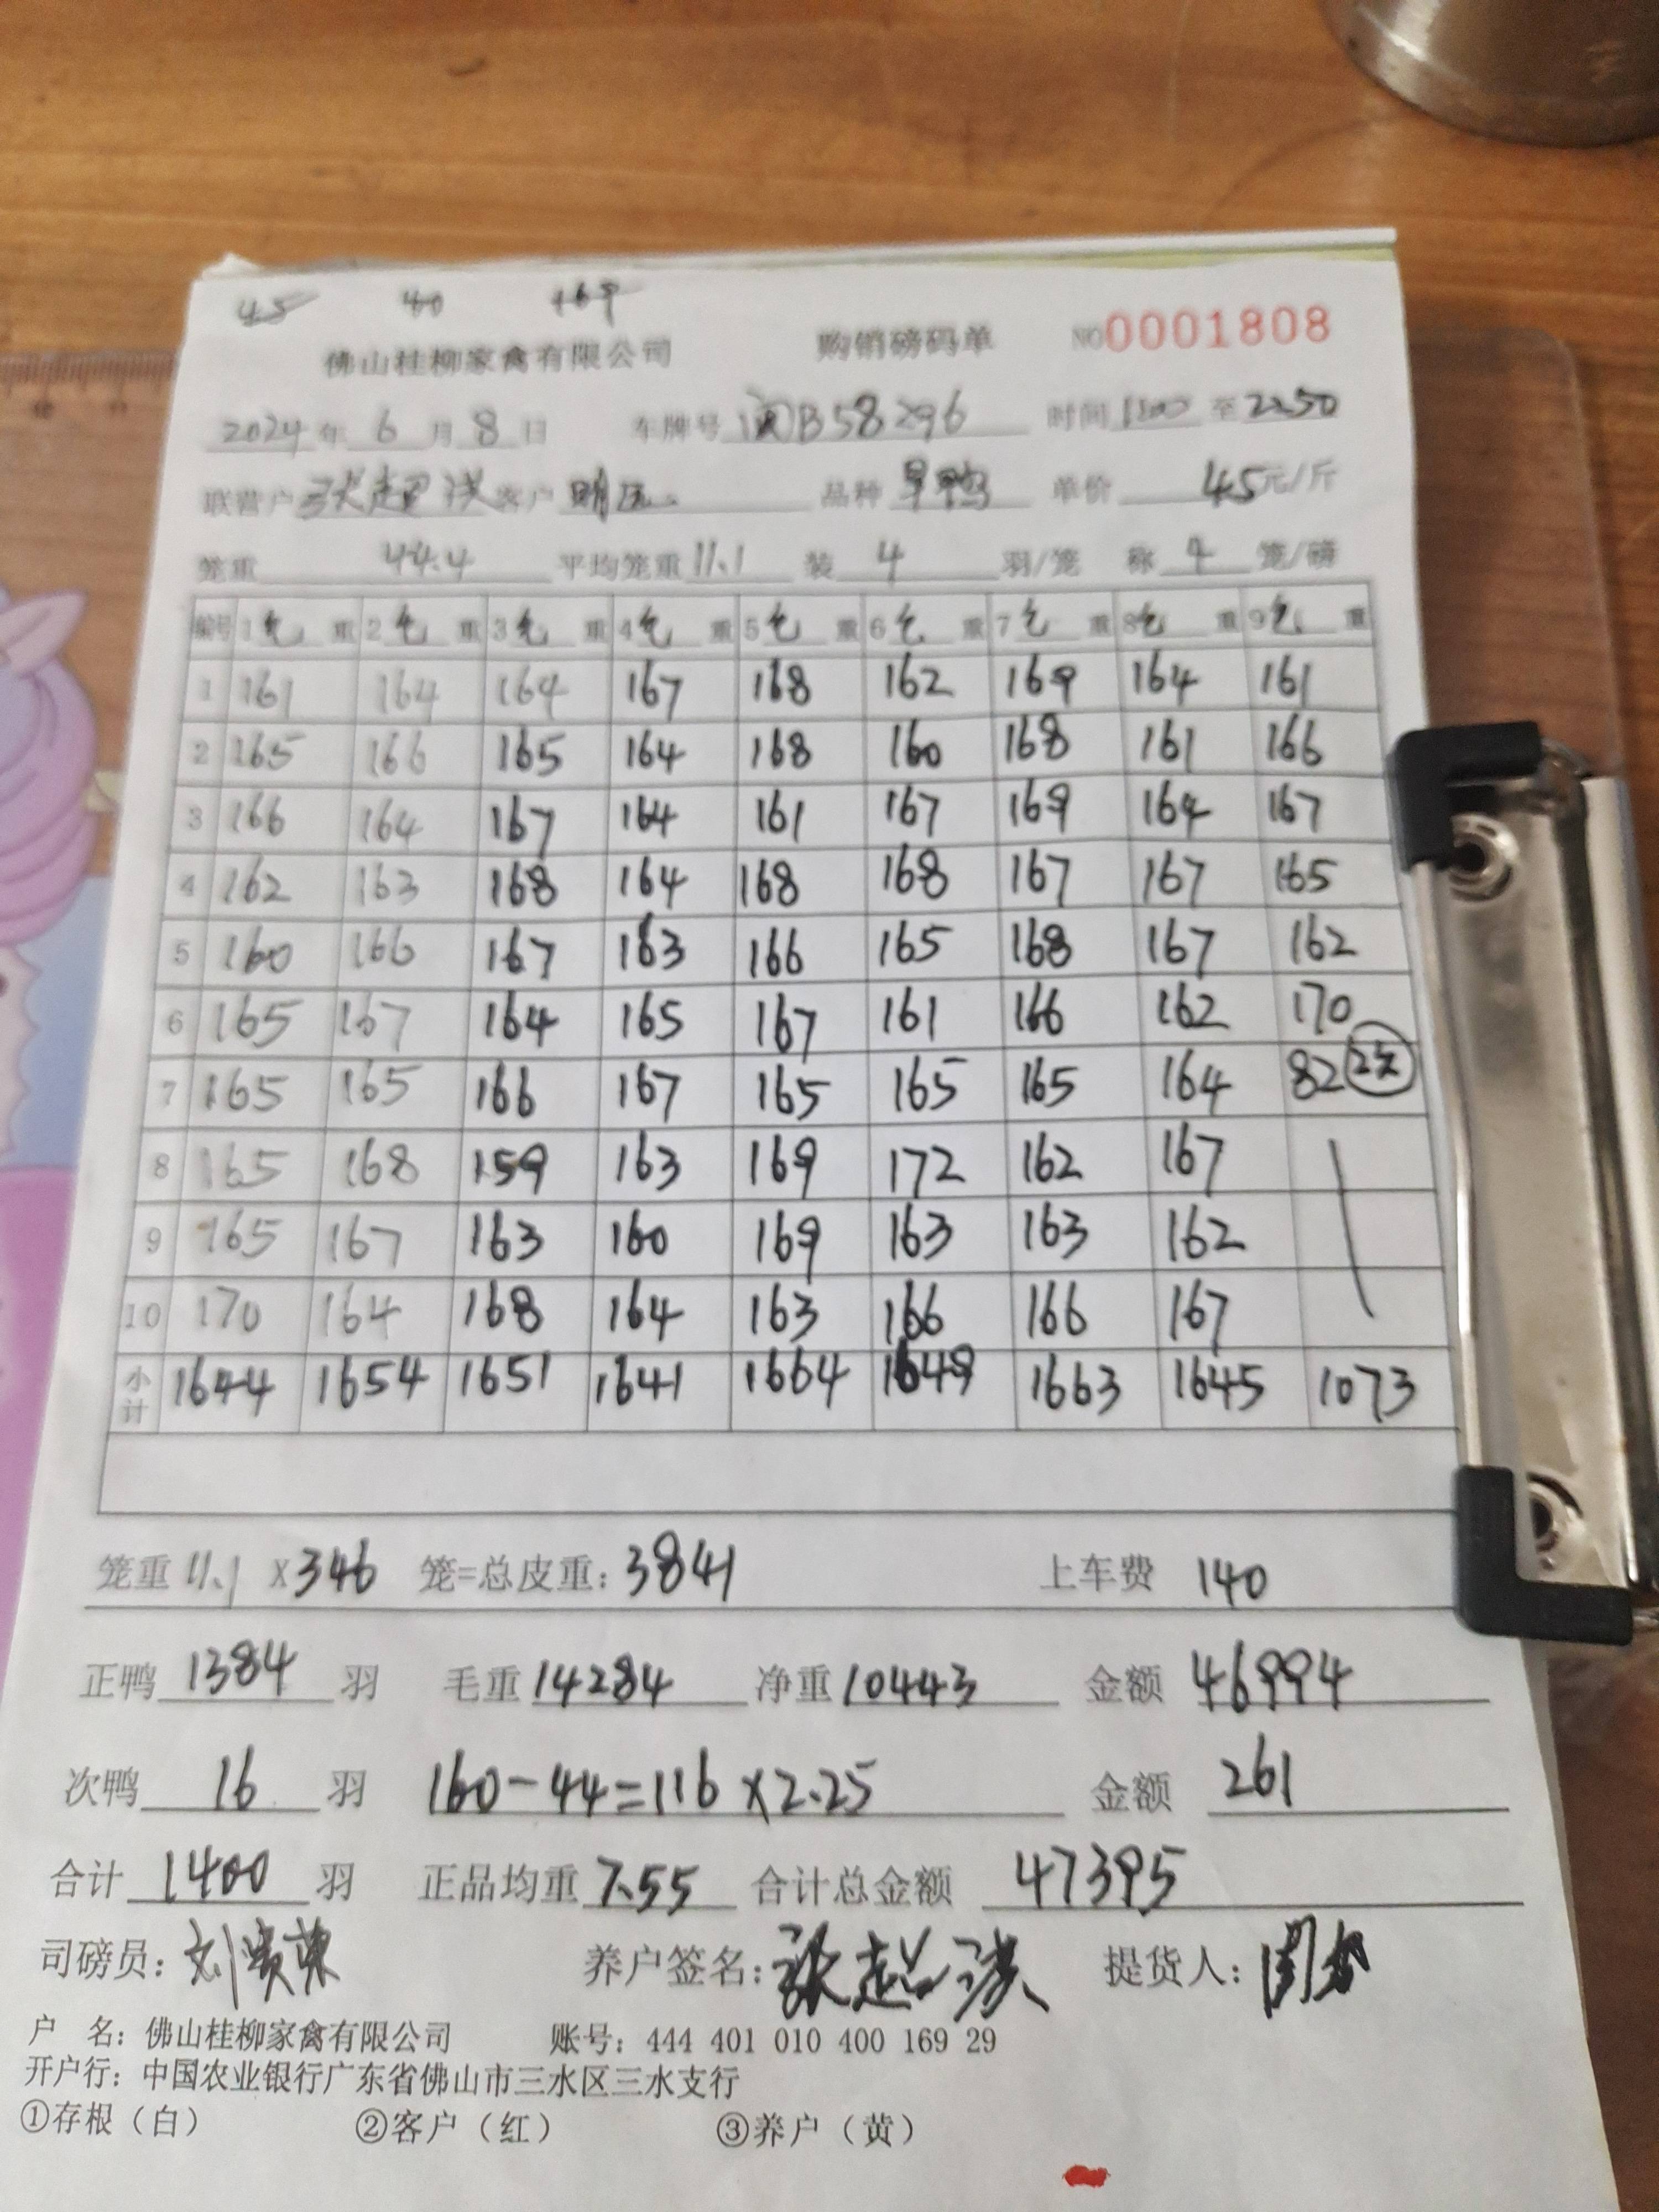 45 40 169
佛山桂柳家禽有限公司 购销磅码单 NO 0001808
2024 年 6 月 8 日 车牌号 闽B58296 时间 1800 至 2250
联营户 张超洪 客户 品种 旱鸭 单价 4.5 元/斤
笼重 44.4 平均笼重 11.1 装 4 羽/笼 称 4 笼/磅
编号 1 毛 重 2 毛 重 3 毛 重 4 毛 重 5 毛 重 6 毛 重 7 毛 重 8 毛 重 9 毛 重
1 161 164 164 167 168 162 169 164 161
2 165 166 165 164 168 160 168 161 166
3 166 164 167 164 161 167 169 164 167
4 162 163 168 164 168 168 167 167 165
5 160 166 167 163 166 165 168 167 162
6 165 167 164 165 167 161 166 162 170
7 165 165 166 167 165 165 165 164 82 2笼
8 165 168 159 163 169 172 162 167
9 165 167 163 160 169 163 163 162
10 170 164 168 164 163 166 166 167
小计 1644 1654 1651 1641 1664 1649 1663 1645 1073
笼重 11.1 X 346 笼=总皮重: 3841 上车费 140
正鸭 1384 羽 毛重 14284 净重 10443 金额 46994
次鸭 16 羽 160-44=116 X 2.25 金额 261
合计 1400 羽 正品均重 7.55 合计总金额 47395
司磅员: 刘贵荣 养户签名: 张超洪 提货人:
户 名: 佛山桂柳家禽有限公司 账号: 444 401 010 400 169 29
开户行: 中国农业银行广东省佛山市三水区三水支行
①存根（白） ②客户（红） ③养户（黄）